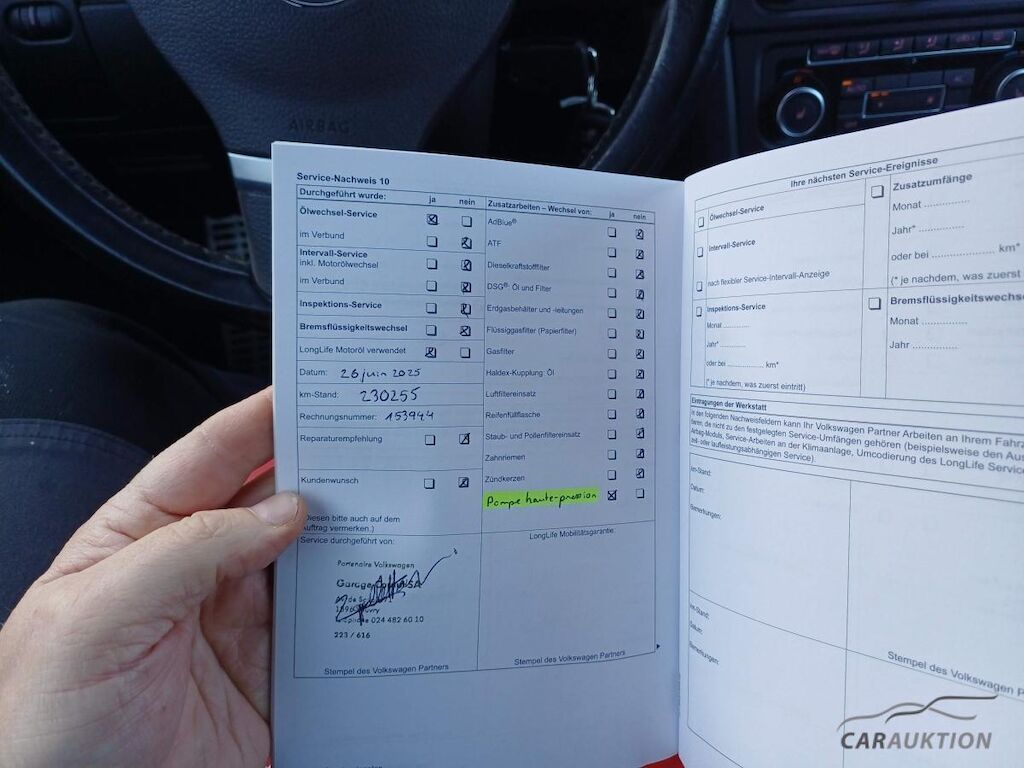 AIRBAG
Service-Nachweis 10
Durchgeführt wurde: ja nein
Ölwechsel-Service
im Verbund
Intervall-Service
inkl. Motorölwechsel
im Verbund
Inspektions-Service
Bremsflüssigkeitswechsel
LongLife Motoröl verwendet
Datum: 26 juin 2025
km-Stand: 230255
Rechnungsnummer: 153944
Reparaturempfehlung
Kundenwunsch
(Diesen bitte auch auf dem
Auftrag vermerken.)
Service durchgeführt von:
Partenaire Volkswagen
Garage
024 482 60 10
223 / 616
Stempel des Volkswagen Partners
Zusatzarbeiten – Wechsel von: ja nein
AdBlue®
ATF
Dieselkraftstofffilter
DSG®: Öl und Filter
Erdgasbehälter und -leitungen
Flüssiggasfilter (Papierfilter)
Gasfilter
Haldex-Kupplung: Öl
Luftfiltereinsatz
Reifenfüllflasche
Staub- und Pollenfiltereinsatz
Zahnriemen
Zündkerzen
Pompe haute-pression
LongLife Mobilitätsgarantie
Stempel des Volkswagen Partners
Ihre nächsten Service-Ereignisse
Ölwechsel-Service
Intervall-Service
nach flexibler Service-Intervall-Anzeige
Inspektions-Service
Monat ..............
Jahr* ..............
oder bei .............. km*
(* je nachdem, was zuerst eintritt)
Zusatzumfänge
Monat ..............
Jahr* ..............
oder bei .............. km*
(* je nachdem, was zuerst
Bremsflüssigkeitswechse
Monat ..............
Jahr ..............
Eintragungen der Werkstatt
In den folgenden Nachweisfeldern kann Ihr Volkswagen Partner Arbeiten an Ihrem Fahrz
tieren, die nicht zu den festgelegten Service-Umfängen gehören (beispielsweise den Aus
Airbag-Moduls, Service-Arbeiten an der Klimaanlage, Umcodierung des LongLife Service
zeit- oder laufleistungsabhängigen Service).
km-Stand:
Datum:
Bemerkungen:
km-Stand:
Datum:
Bemerkungen:
Stempel des Volkswagen P
CARAUKTION